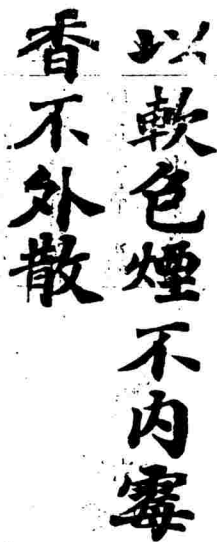 以軟色煙不内霉
香不外散